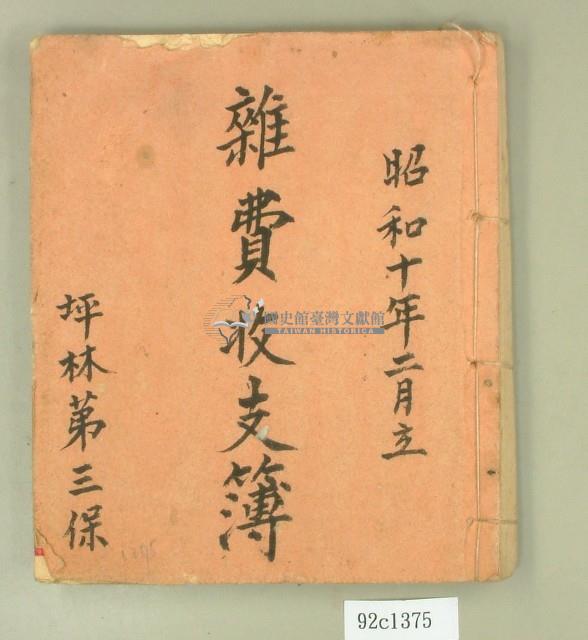 昭和十年二月立
雜費收支簿
坪林第三保
國史館臺灣文獻館
TAIWAN HISTORICA
1375
92c1375